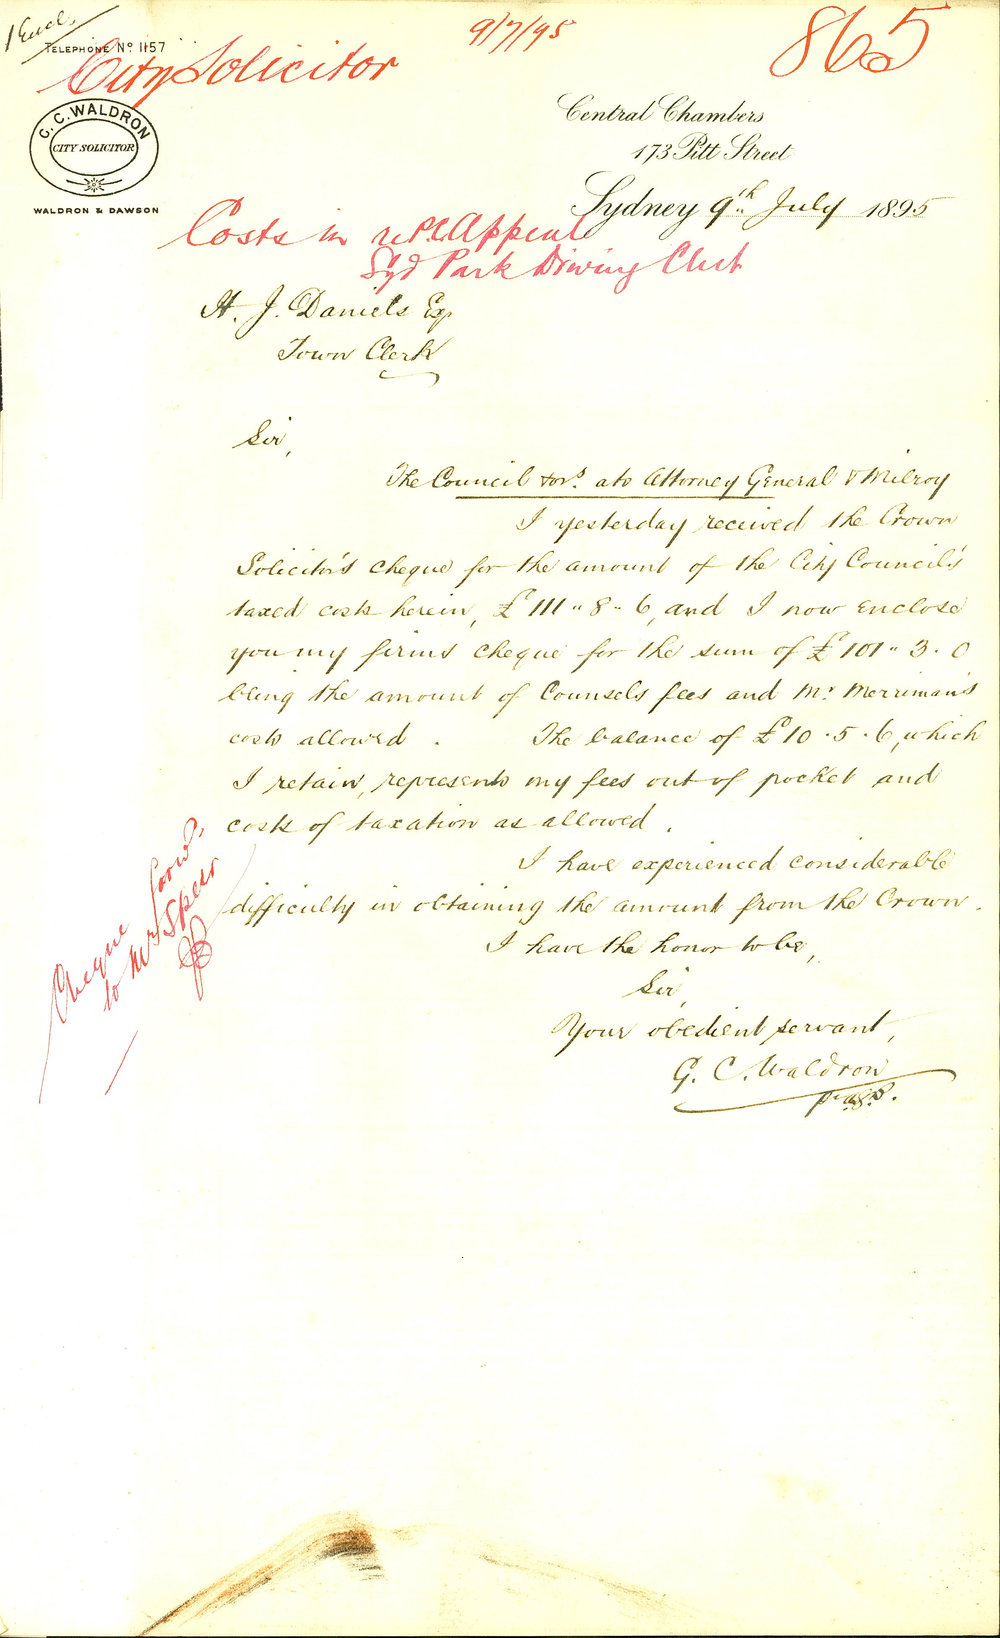 1 Encl.
9/7/95
865
TELEPHONE No 1157
City Solicitor
G. C. WALDRON
CITY SOLICITOR
WALDRON & DAWSON
Central Chambers
173 Pitt Street
Sydney 9th July 1895
Costs in re P.C. Appeal
Syd Park Driving Club
H. J. Daniels Esq
Town Clerk
Sir,
The Council & ors. ats Attorney General & Milroy
I yesterday received the Crown
Solicitor's cheque for the amount of the City Council's
taxed costs herein, £111 " 8 " 6, and I now enclose
you my firms cheque for the sum of £101 " 3 . 0
being the amount of Counsels fees and Mr Merriman's
costs allowed . The balance of £10 . 5 . 6, which
I retain, represents my fees out of pocket and
costs of taxation as allowed .
I have experienced considerable
difficulty in obtaining the amount from the Crown .
I have the honor to be,
Sir,
Your obedient servant,
G. C. Waldron
Cheque forwd.
to Mr Speer